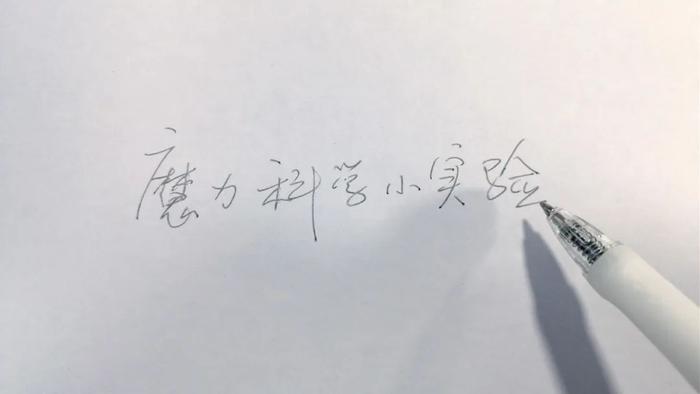 魔力科学小实验